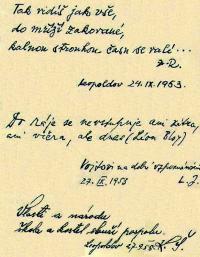 Tak vidíš jak vše,
do mříží zakované,
kalnou stronkou času se valí...
J. R.
Leopoldov 24.IX.1953.
Do Ráje se nevstupuje ani zítra,
ani včera, ale dnes (Léon Bloy)
Vojtovi na dobré vzpomínání
27. IX. 1953 L. J.
Vlasti a národu
škola a kostel sloučí pospolu.
Leopoldov 27.9.53. K. Š.